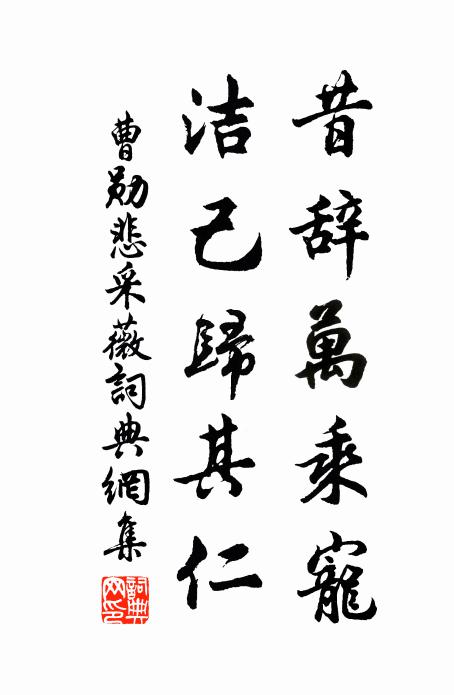 昔辞萬乘寵
洁己歸其仁
曹勛悲采薇詞典網集
詞典網印